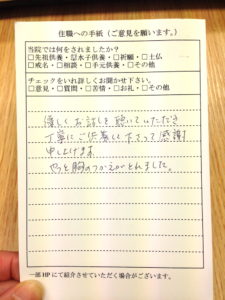 住職への手紙（ご意見を願います。）
当院では何をされましたか？
□先祖供養・☑水子供養・□祈願・□土仏
□戒名・□相談・□手元供養・□その他
チェックをいれ詳しくお聞かせ下さい。
□意見・□質問・□苦情・□お礼・□その他
優しくお話しを聴いていただき
丁寧にご供養して下さって感謝
申し上げます
やっと胸のつかえがとれました。
一部HPにて紹介させていただく場合がございます。